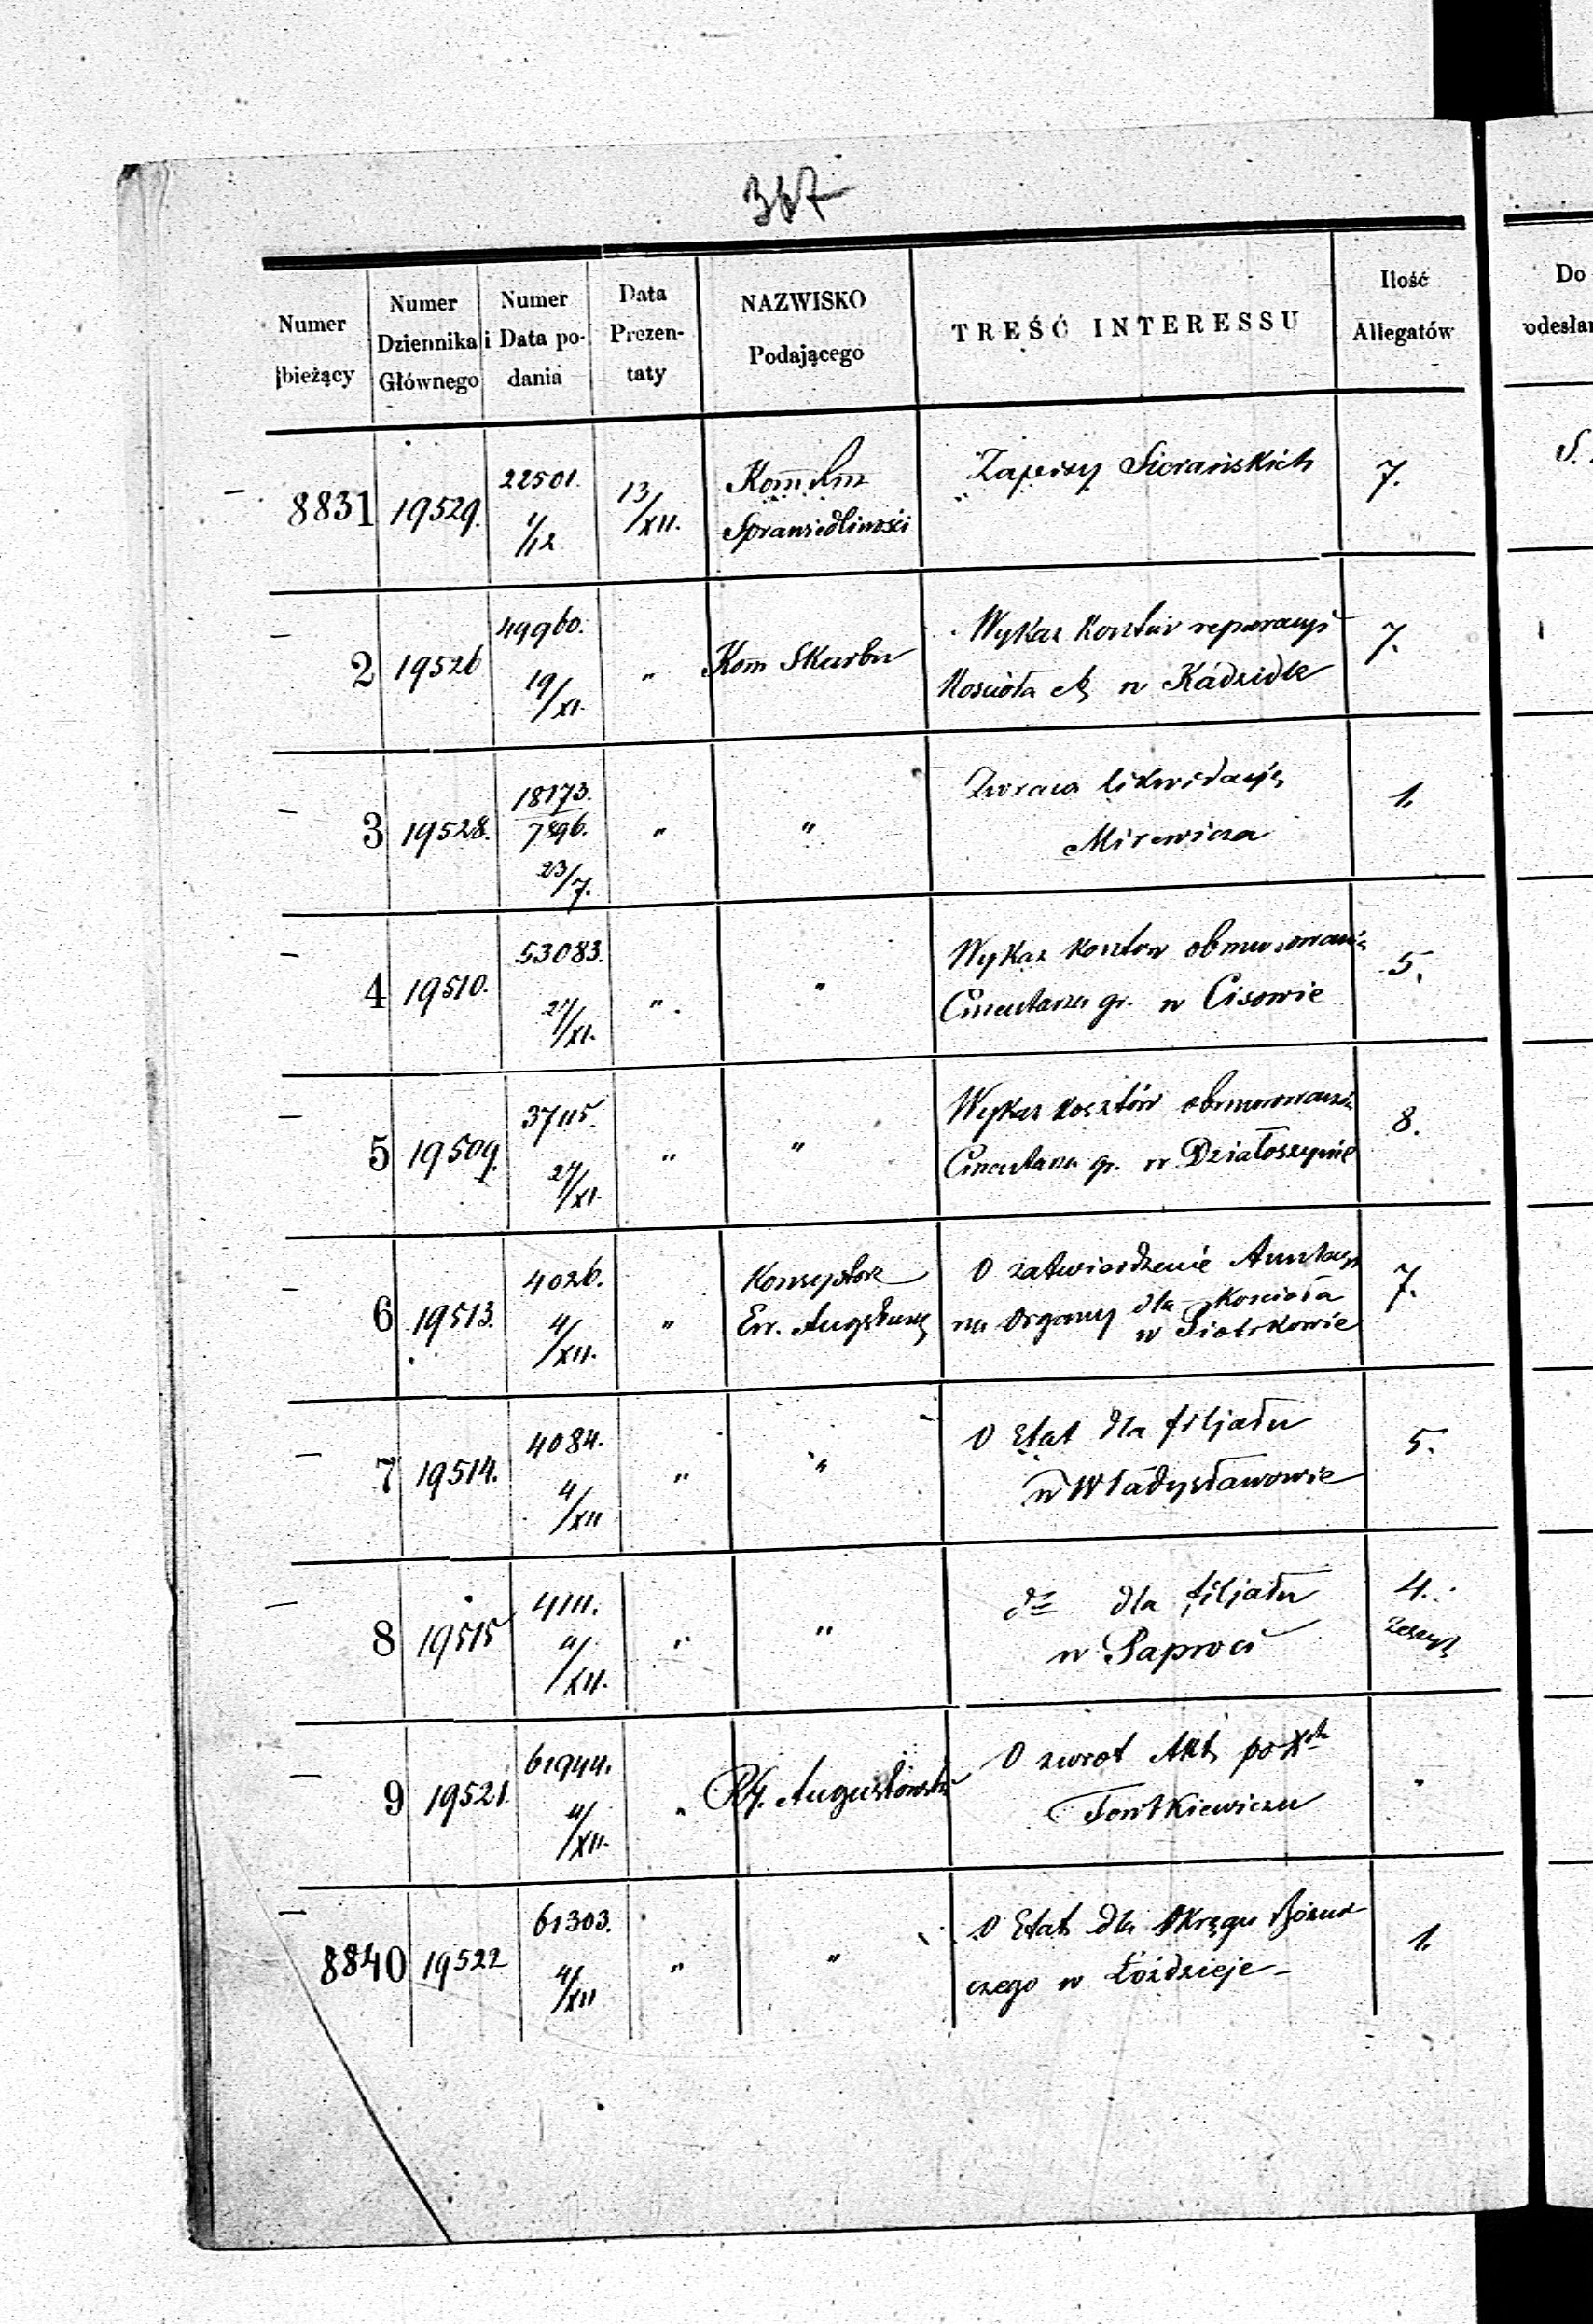 367
Numer bieżący
Numer Dziennika Głównego
Numer i Data podania
Data Prezentaty
NAZWISKO Podającego
TREŚĆ INTERESSU
Ilość Allegatów
Do odesłan
8831 19529. 22501. 1/12 13/XII. Kom Sprawiedliwości Zapisy 7. S.
2 19526 49960. 19/XI. " Kom Skarbu Wykaz Kosztów reparacyi
Kościoła w Kadzidle 7.
3 19528. 18173. 7896. 23/7. " " Zwraca likwidacyię
Mirewicza 1.
4 19510. 53083. 27/XI. " " Wykaz kosztow obmurowania
Cmentarza gr. w Cisowie 5.
5 19509. 37115. 27/XI. " " Wykaz kosztów obmurowania
Cmentarza gr. w Działoszynie 8.
6 19513. 4026. 4/XII. " Konsystorz
Ew. Augsburg O zatwierdzenie
na Organy dla Kościoła
w Piotrkowie 7.
7 19514. 4084. 4/XII " " O Etat dla filjału
w Władysławowie 5.
8 19515 4111. 4/XII. " " dto dla filjału
w Paproci 4.
zeszyt
9 19521. 61944. 4/XII. " Augustowski O zwrot Akt po Xdz
10 Tontkiewiczu
8840 19522 61303. 4/XII " " O Etat dla Okręgu Bóźni-
czego w Łoździeje 1.